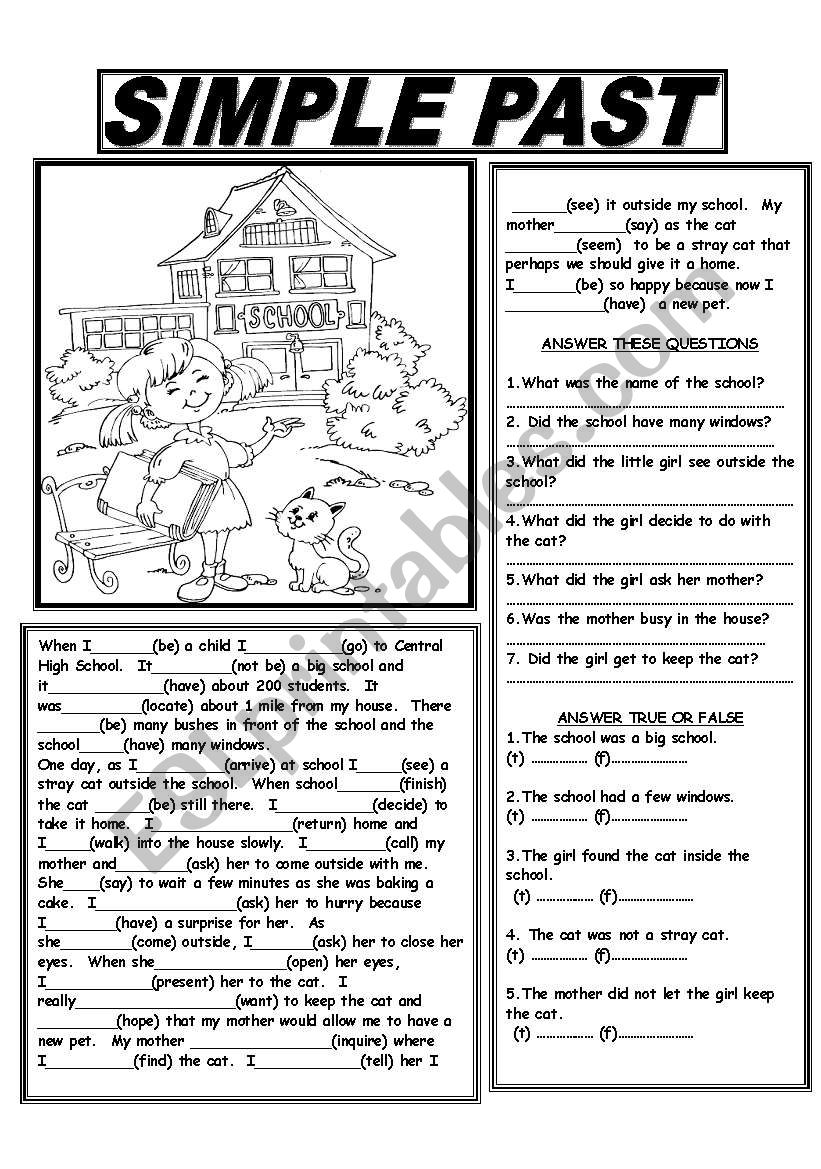 SIMPLE PAST
SCHOOL
When I_______(be) a child I____________(go) to Central
High School.  It__________(not be) a big school and
it______________(have) about 200 students.  It
was__________(locate) about 1 mile from my house.  There
_______(be) many bushes in front of the school and the
school_____(have) many windows.
One day, as I__________(arrive) at school I_____(see) a
stray cat outside the school.  When school_______(finish)
the cat ______(be) still there.  I___________(decide) to
take it home.  I_______________(return) home and
I_____(walk) into the house slowly.  I_________(call) my
mother and________(ask) her to come outside with me.
She____(say) to wait a few minutes as she was baking a
cake.  I_______________(ask) her to hurry because
I________(have) a surprise for her.  As
she________(come) outside, I_______(ask) her to close her
eyes.  When she______________(open) her eyes,
I____________(present) her to the cat.  I
really_________________(want) to keep the cat and
_________(hope) that my mother would allow me to have a
new pet.  My mother _______________(inquire) where
I__________(find) the cat.  I____________(tell) her I
______(see) it outside my school.  My
mother________(say) as the cat
________(seem)  to be a stray cat that
perhaps we should give it a home.
I_______(be) so happy because now I
___________(have)  a new pet.
ANSWER THESE QUESTIONS
1.What was the name of the school?
……………………………………………………………………
2. Did the school have many windows?
……………………………………………………………………
3.What did the little girl see outside the
school?
……………………………………………………………………
4.What did the girl decide to do with
the cat?
……………………………………………………………………
5.What did the girl ask her mother?
……………………………………………………………………
6.Was the mother busy in the house?
……………………………………………………………………
7. Did the girl get to keep the cat?
……………………………………………………………………
ANSWER TRUE OR FALSE
1.The school was a big school.
(t) ……………… (f)……………………
2.The school had a few windows.
(t) ……………… (f)……………………
3.The girl found the cat inside the
school.
(t) ……………… (f)……………………
4. The cat was not a stray cat.
(t) ……………… (f)……………………
5.The mother did not let the girl keep
the cat.
(t) ……………… (f)……………………
ESLprintables.com